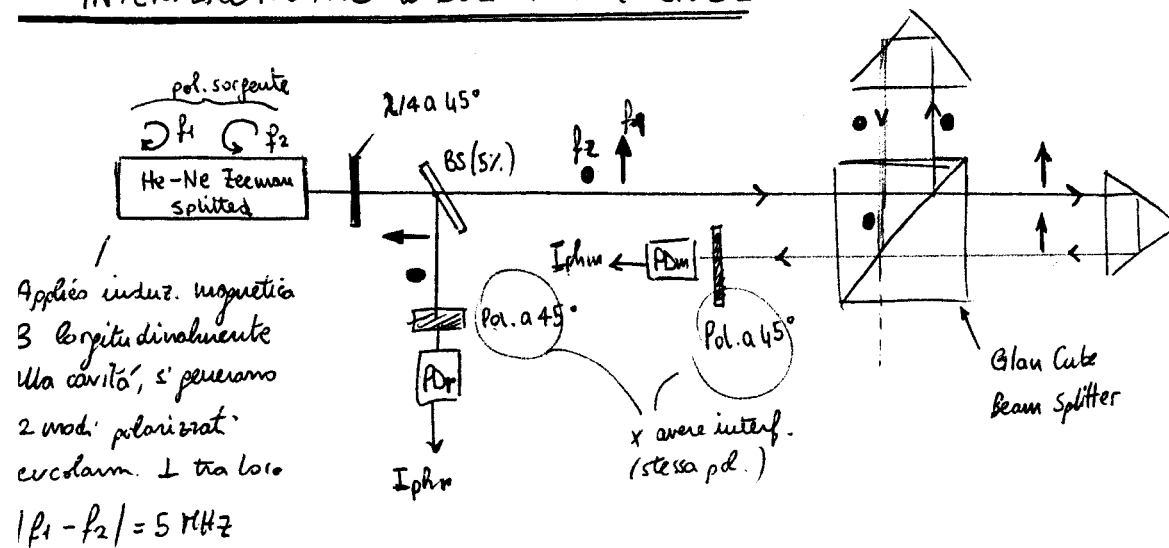 pol. sorgente
f1 f2
He-Ne Zeeman
splitted
λ/4 a 45°
BS (5%)
f2
Iphm
PDm
Pol. a 45°
Pol. a 45°
PDr
Iphr
x avere interf.
(stessa pol.)
Glan Cube
Beam Splitter
Applico induz. magnetica
B longitudinalmente
alla cavità, si generano
2 modi polarizzati
circolarm. ⊥ tra loro
|f1 - f2| = 5 MHz